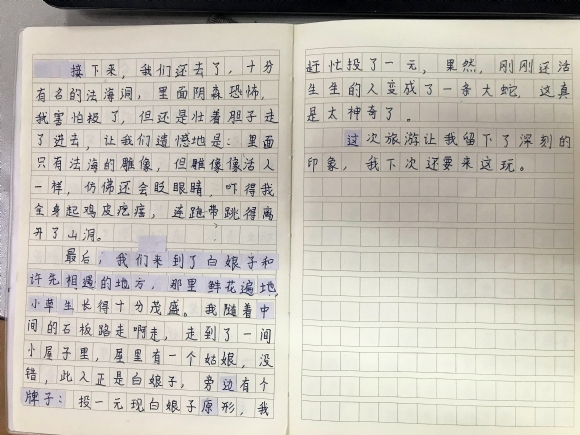 接下来，我们还去了，十分
有名的法海洞，里面阴森恐怖，
我害怕极了，但还是壮着胆子走
了进去，让我们遗憾地是：里面
只有法海的雕像，但雕像像活人
一样，仿佛还会眨眼睛，吓得我
全身起鸡皮疙瘩，连跑带跳得离
开了山洞。
最后，我们来到了白娘子和
许先相遇的地方，那里鲜花遍地，
小草生长得十分茂盛。我随着中
间的石板路走啊走，走到了一间
小屋子里，屋里有一个姑娘，没
错，此人正是白娘子，旁边有个
牌子：投一元现白娘子原形，我
赶忙投了一元，果然，刚刚还活
生生的人变成了一条大蛇，这真
是太神奇了。
这次旅游让我留下了深刻的
印象，我下次还要来这玩。